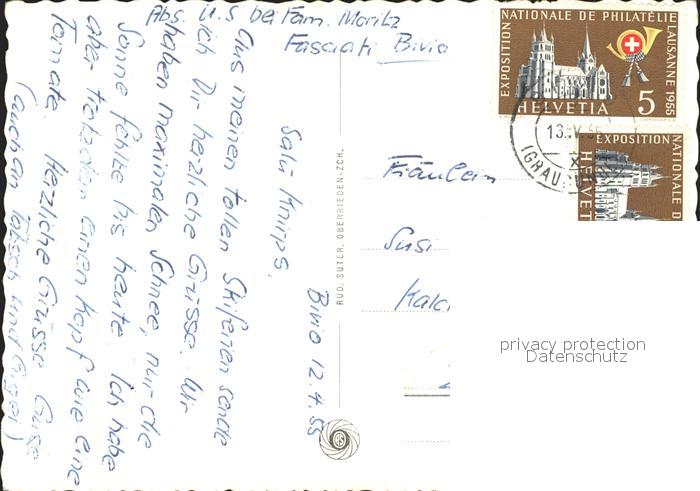 Abs. U.S. bei Fam. Moritz
Fasciati Bivio
Bivio 12.4.55
Salü Knirps,
Aus meinen tollen Skiferien sende
ich Dir herzliche Grüsse. Wir
haben maximalen Schnee, nur die
Sonne fehlte bis heute. Ich habe
aber trotzdem einen Kopf wie eine
Tomate. Herzliche Grüsse
(auch an Tätsch und Eugei)
RUD. SUTER, OBERRIEDEN-ZCH.
EXPOSITION NATIONALE DE PHILATÉLIE LAUSANNE 1955
HELVETIA 5
EXPOSITION NATIONALE D
HELVET
(GRAUBÜN
Fräulein
Susi
privacy protection
Datenschutz